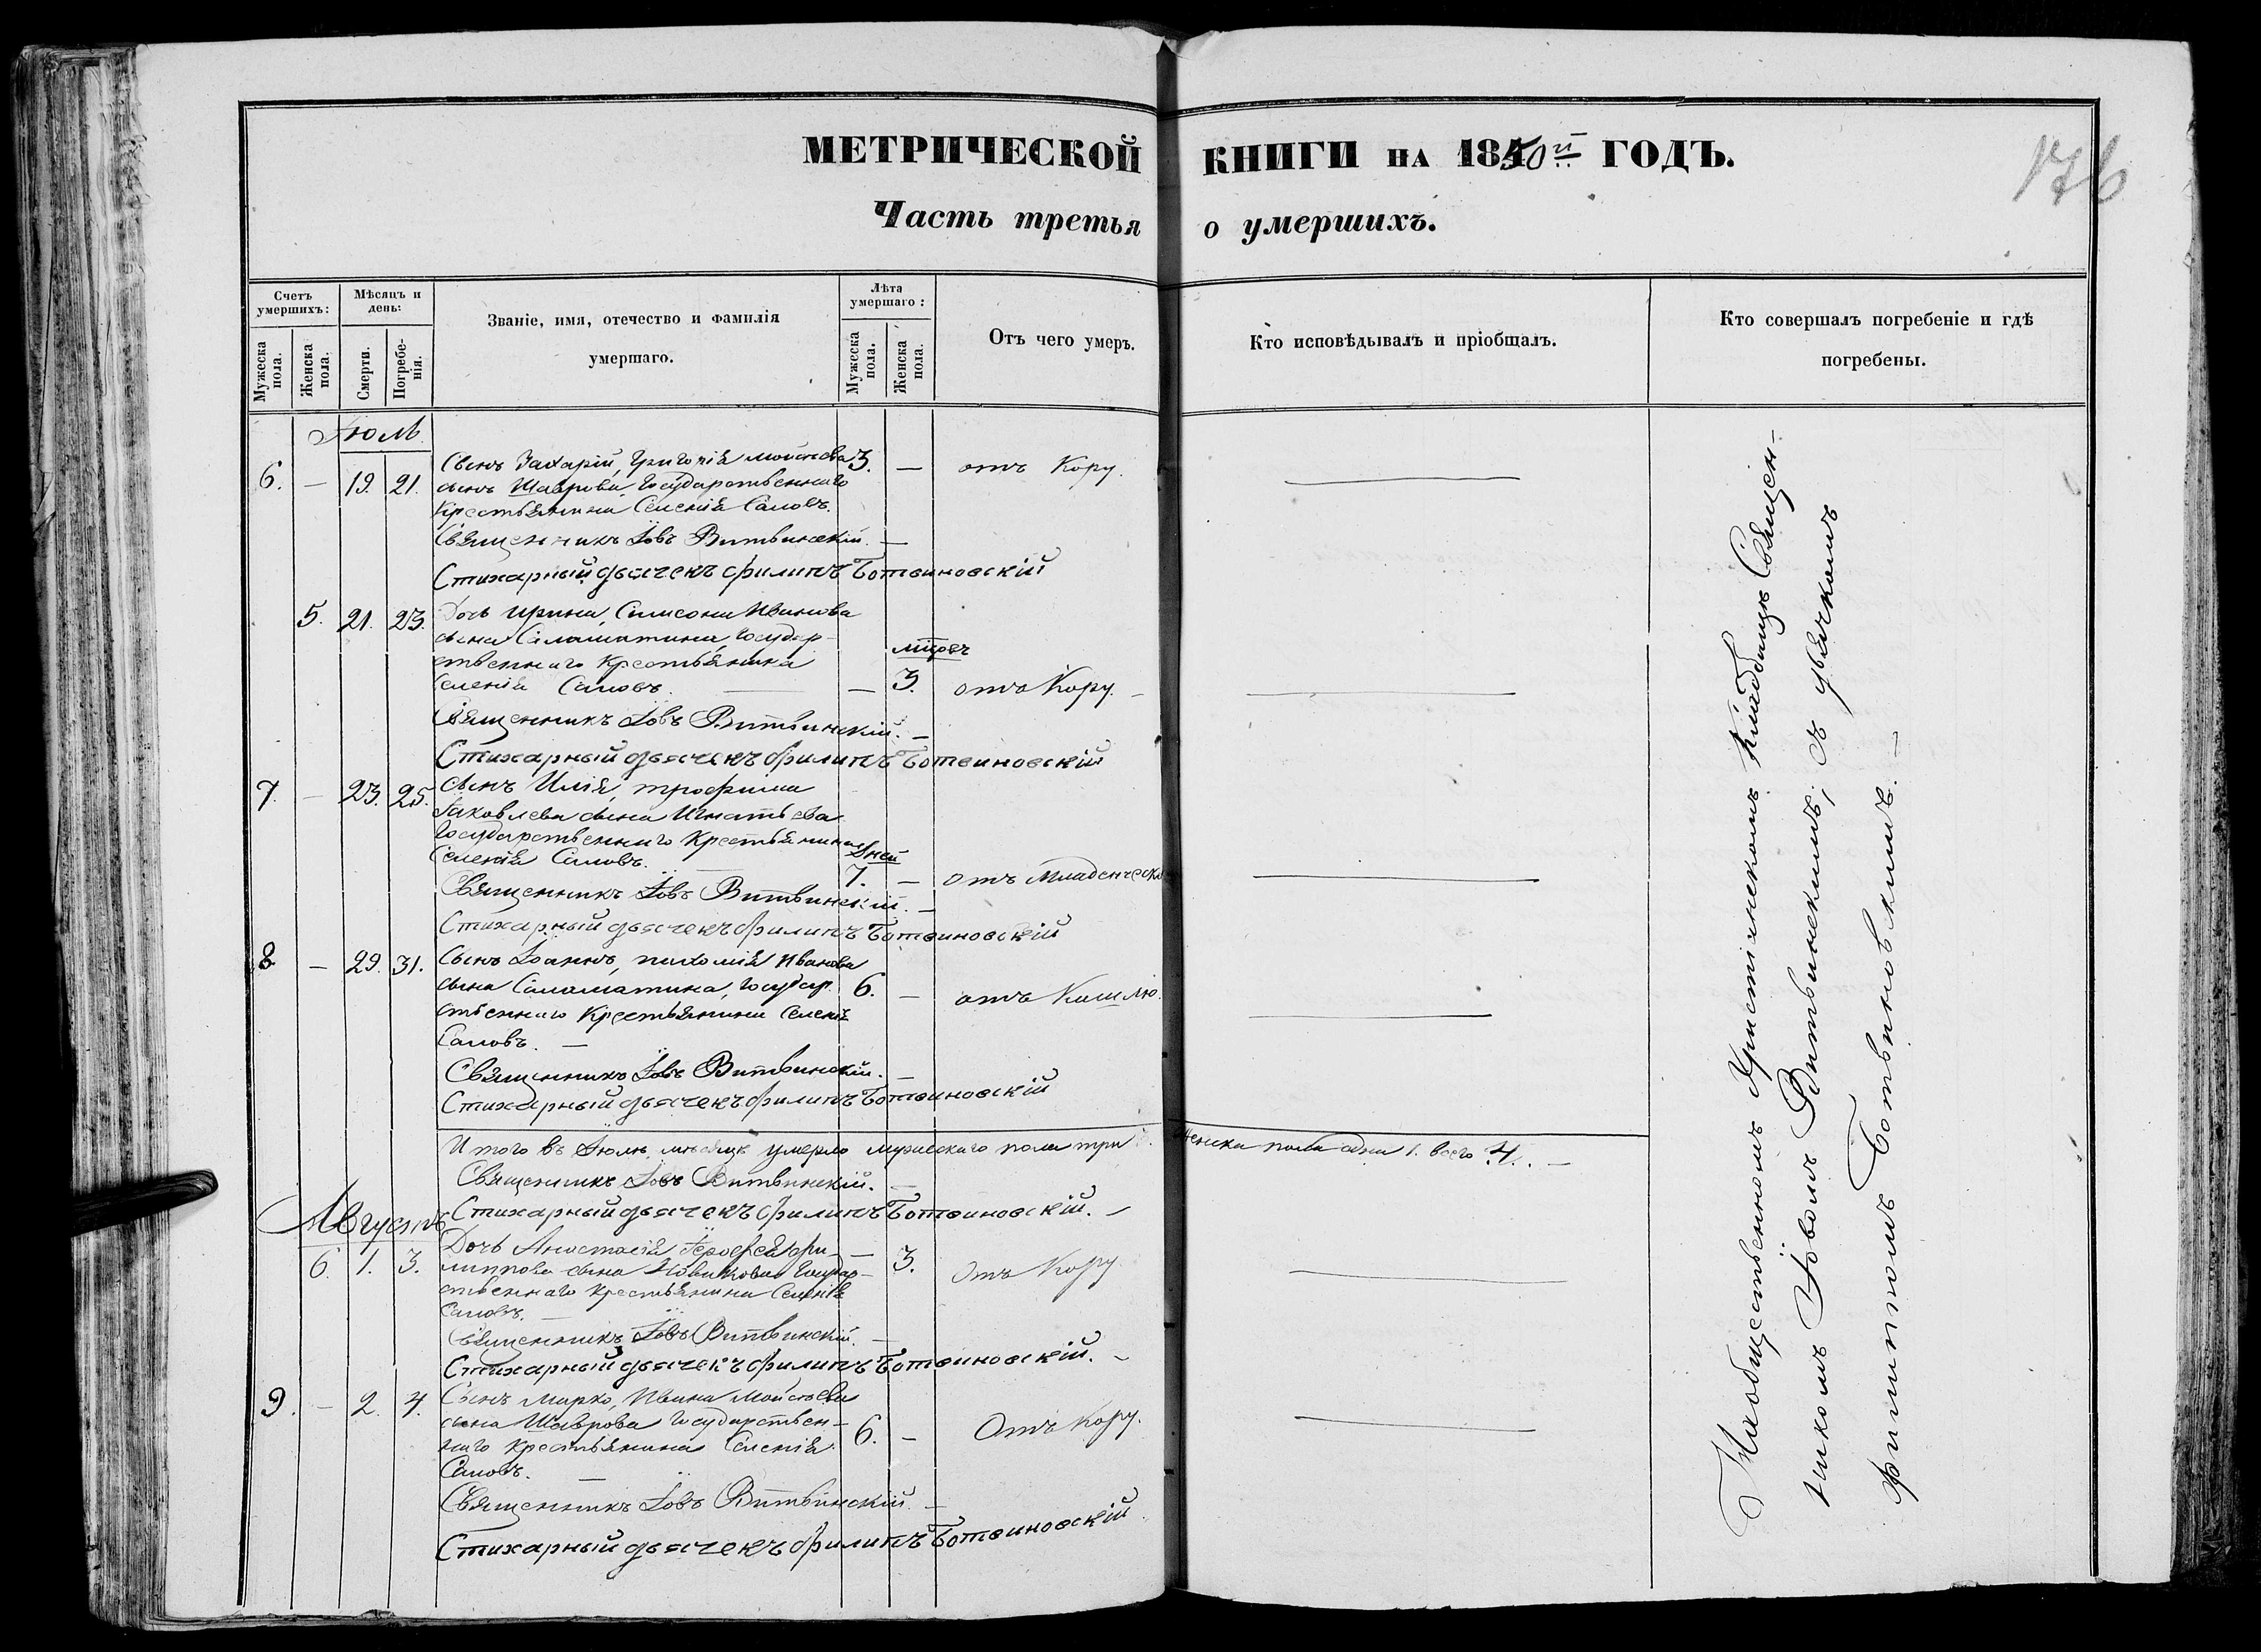 МЕТРИЧЕСКОЙ КНИГИ НА 1850й ГОДЪ.
176
Часть третья о умершихъ.
Счетъ умершихъ:
Мужеска пола.
Женска пола.
Мѣсяцъ и день:
Смерти.
Погребенія.
Званіе, имя, отечество и фамилія
умершаго.
Лѣта умершаго:
Мужеска пола.
Женска пола.
Отъ чего умеръ.
Кто исповѣдывалъ и пріобщалъ.
Кто совершалъ погребеніе и гдѣ
погребены.
Іюль
6. — 19. 21. Сынъ Захарій, Григорія Мойсеева 3. — отъ Кору.
сына Шаврова, Государственнаго
Крестьянина Селенія Саловъ.
Священникъ Іовъ Витвинскій. —
Стихарный дьячекъ Филипъ Ботвиновскій
5. 21. 23. Дочь Ирина, Самсона Иванова
сына Саламатина, Государ-
ственнаго Крестьянина
Селенія Саловъ. — мцовъ 3. отъ Кору. —
Священникъ Іовъ Витвинскій. —
Стихарный дьячекъ Филипъ Ботвиновскій
7. — 23. 25. Сынъ Илія, Трофима
Іаковлева сына Игнатьева
Государственнаго Крестьянина
Селенія Саловъ. Дней 7. — отъ Младенческ
Священникъ Іовъ Витвинскій. —
Стихарный дьячекъ Филипъ Ботвиновскій
8. — 29. 31. Сынъ Іоаннъ, Пахомія Иванова
сына Саламатина, Государ- 6. — отъ Кашлю.
ственнаго Крестьянина Селенія
Саловъ. —
Священникъ Іовъ Витвинскій. —
Стихарный дьячекъ Филипъ Ботвиновскій
Итого въ Іюлѣ мѣсяцѣ умерло мужескаго пола три женска пола одна 1. всего 4. —
Священникъ Іовъ Витвинскій. —
Стихарный дьячекъ Филипъ Ботвиновскій. —
Августъ
6. 1. 3. Дочь Анастасія Іерофея Фи- — 3. Отъ Кору.
липпова сына Новикова Государ-
ственнаго Крестьянина Селенія
Саловъ. —
Священникъ Іовъ Витвинскій. —
Стихарный дьячекъ Филипъ Ботвиновскій. —
9. — 2. 4. Сынъ Марко, Ивана Мойсеева
сына Шаврова Государствен- 6. — Отъ Кору.
наго Крестьянина Селенія
Саловъ. —
Священникъ Іовъ Витвинскій. —
Стихарный дьячекъ Филипъ Ботвиновскій
На общественномъ Христіянскомъ Кладбищѣ Священ-
никомъ Іовомъ Витвинскимъ; съ дьячкомъ
Филиппомъ Ботвиновскимъ. —